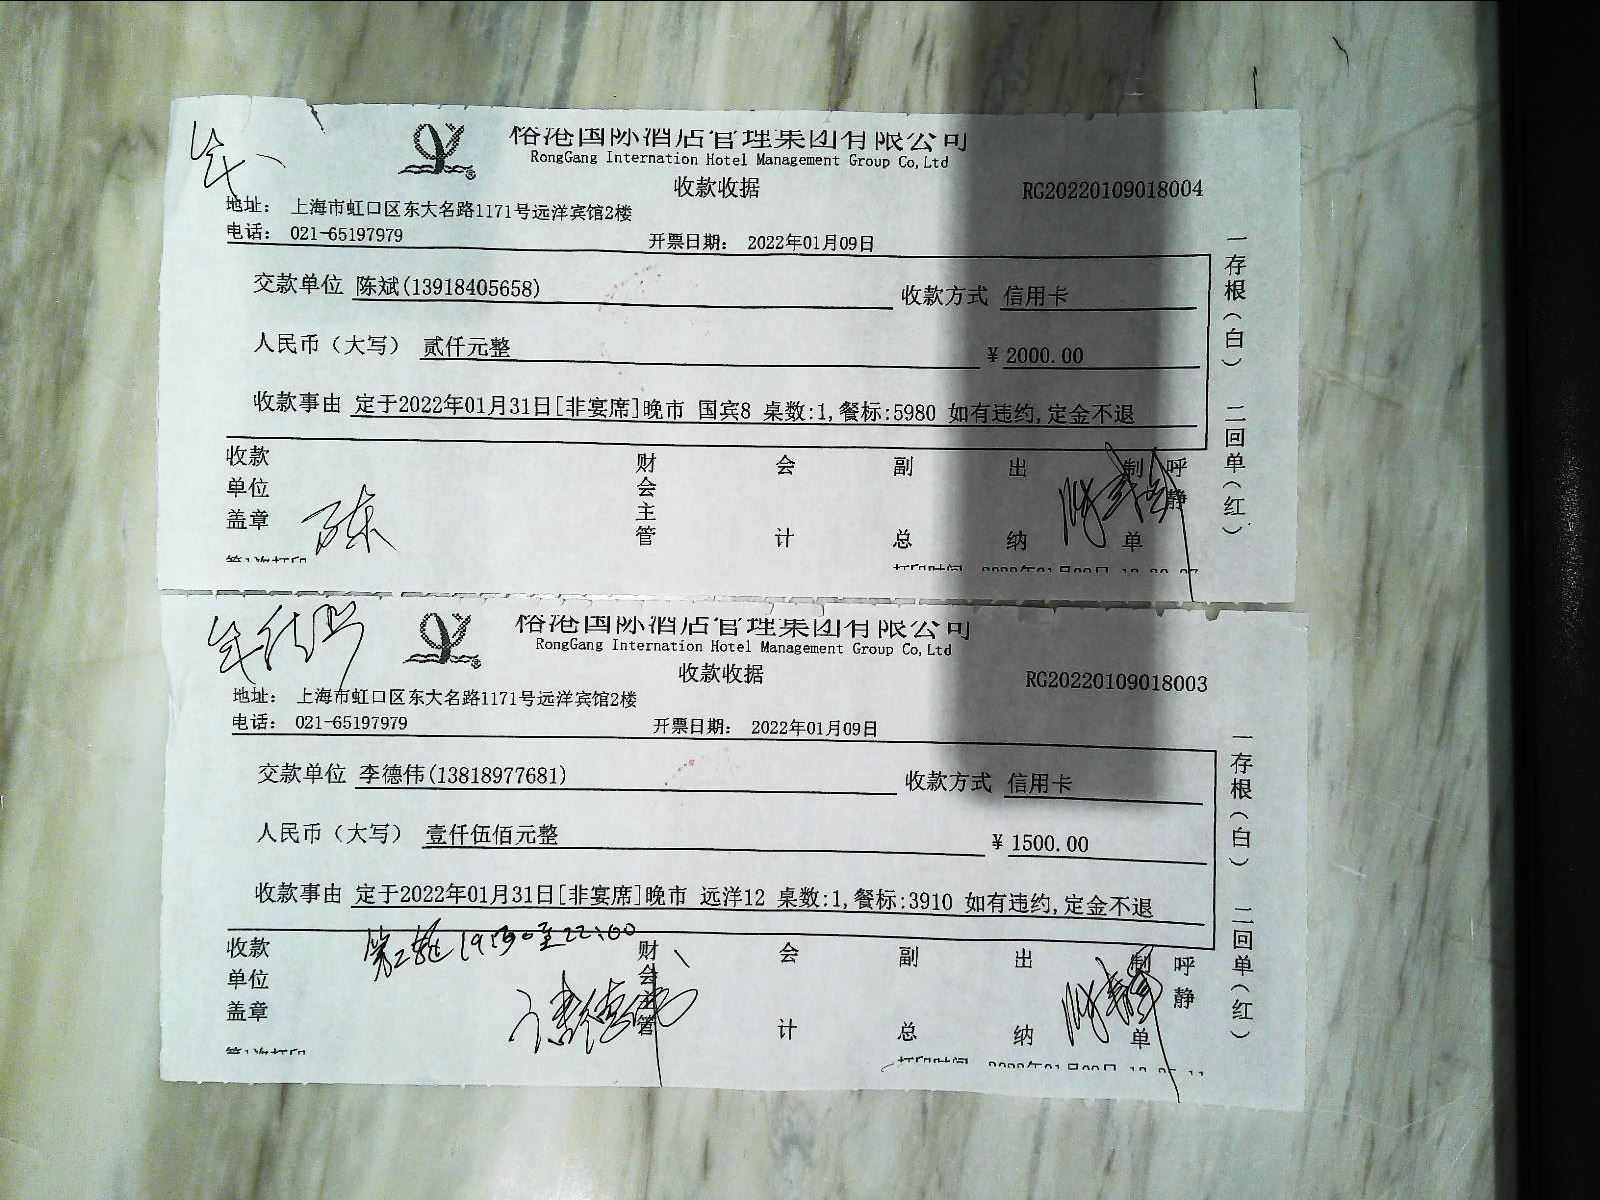 榕港国际酒店管理集团有限公司
RongGang Internation Hotel Management Group Co,Ltd
收款收据
RG20220109018004
地址： 上海市虹口区东大名路1171号远洋宾馆2楼
电话： 021-65197979
开票日期： 2022年01月09日
交款单位 陈斌(13918405658)
收款方式 信用卡
人民币（大写） 贰仟元整
￥2000.00
收款事由 定于2022年01月31日[非宴席]晚市 国宾8 桌数:1,餐标:5980 如有违约,定金不退
一存根(白) 二回单(红)
收款单位盖章
财会主管
会计
副总
出纳
制单
呼静
第1次打印
榕港国际酒店管理集团有限公司
RongGang Internation Hotel Management Group Co,Ltd
收款收据
RG20220109018003
地址： 上海市虹口区东大名路1171号远洋宾馆2楼
电话： 021-65197979
开票日期： 2022年01月09日
交款单位 李德伟(13818977681)
收款方式 信用卡
人民币（大写） 壹仟伍佰元整
￥1500.00
收款事由 定于2022年01月31日[非宴席]晚市 远洋12 桌数:1,餐标:3910 如有违约,定金不退
一存根(白) 二回单(红)
收款单位盖章
财会主管
会计
副总
出纳
制单
呼静
第1次打印